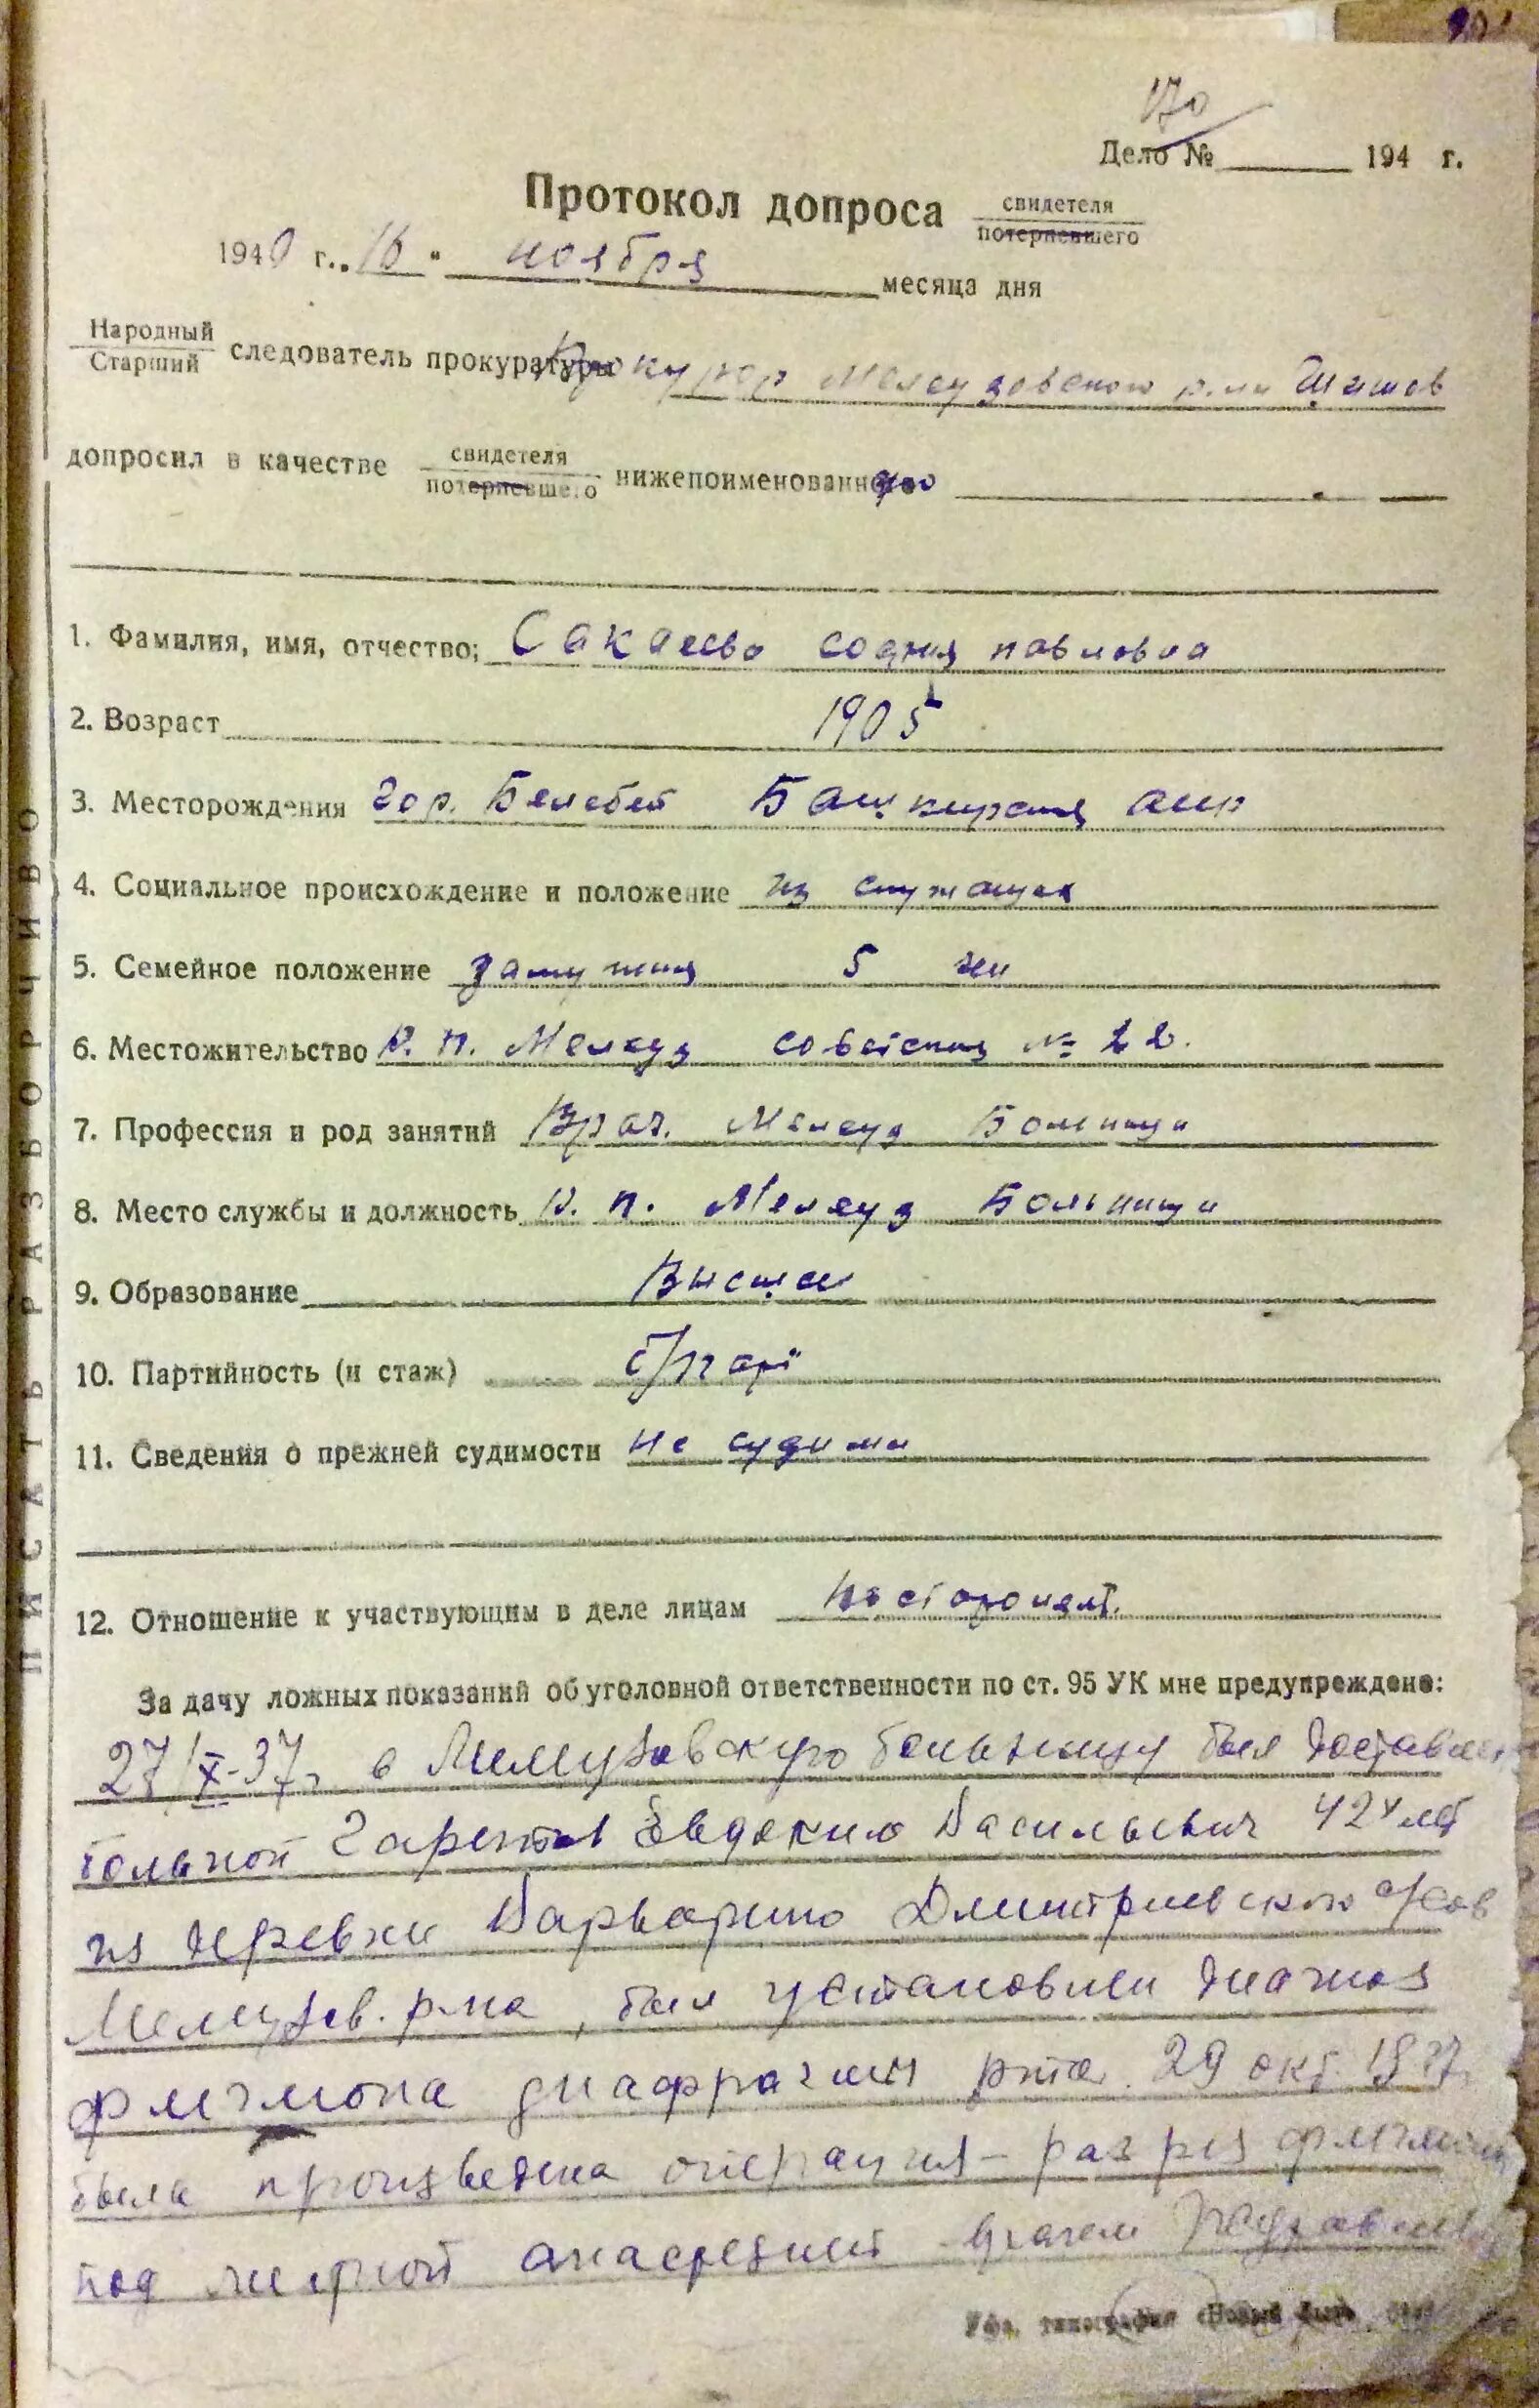 170
Дело № 194 г.
Протокол допроса свидетеля
потерпевшего
1940 г. „16 " ноября месяца дня
Народный
Старший следователь прокуратуры Прокурор Мелеузовского р-на Шишов
допросил в качестве свидетеля
потерпевшего нижепоименованную
1. Фамилия, имя, отчество; Сакаева София Павловна
2. Возраст 1905
3. Месторождения гор. Белебей Башкирская асср
4. Социальное происхождение и положение из служащих
5. Семейное положение замужняя 5 чел
6. Местожительство Р. п. Мелеуз советская № 22.
7. Профессия и род занятий Врач. Мелеуз Больница
8. Место службы и должность Р. п. Мелеуз Больница
9. Образование Высшее
10. Партийность (и стаж) б/парт
11. Сведения о прежней судимости не судима
12. Отношение к участвующим в деле лицам
За дачу ложных показаний об уголовной ответственности по ст. 95 УК мне предупреждено:
27/X-37г. в Мелеузовскую больницу был доставлен
больной Евдоким Васильевич 42х лет
из деревни Варварино Дмитриевского с/сов
Мелеузов. р-на, был установлен диагноз
флегмона диафрагмы рта. 29 окт. 1937
была произведена операция – разрез флегмоны
под местной анастезией врачем
Уфа, типография «Новый быт»
ПИСАТЬ РАЗБОРЧИВО